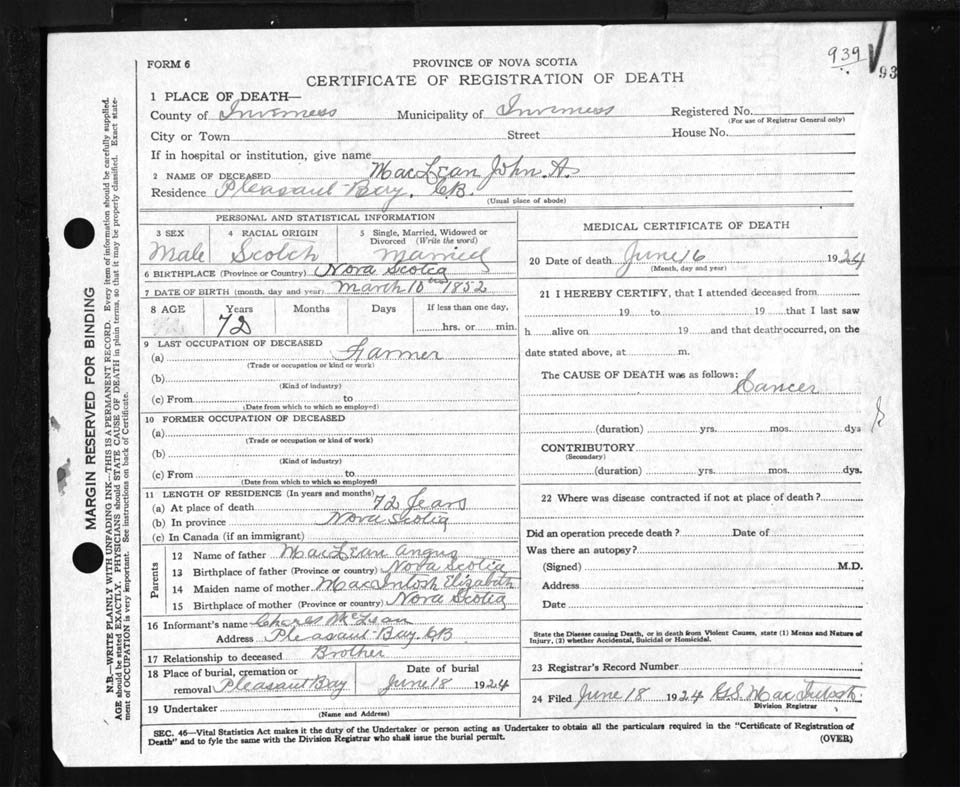 939
93
FORM 6
PROVINCE OF NOVA SCOTIA
CERTIFICATE OF REGISTRATION OF DEATH
1 PLACE OF DEATH—
County of Inverness Municipality of Inverness Registered No.
(For use of Registrar General only)
City or Town Street House No.
If in hospital or institution, give name
2 NAME OF DECEASED MacLean John. A.
Residence Pleasant-Bay. C.B.
(Usual place of abode)
PERSONAL AND STATISTICAL INFORMATION
3 SEX 4 RACIAL ORIGIN 5 Single, Married, Widowed or
Divorced (Write the word)
Male Scotch Married
6 BIRTHPLACE (Province or Country) Nova Scotia
7 DATE OF BIRTH (month, day and year) March 10th 1852
8 AGE Years Months Days If less than one day,
72 hrs. or min.
9 LAST OCCUPATION OF DECEASED
(a) Farmer
(Trade or occupation or kind or work)
(b)
(Kind of industry)
(c) From to
(Date from which to which so employed)
10 FORMER OCCUPATION OF DECEASED
(a)
(Trade or occupation or kind of work)
(b)
(Kind of industry)
(c) From to
(Date from which to which so employed)
11 LENGTH OF RESIDENCE (In years and months)
(a) At place of death 72 Years
(b) In province Nova Scotia
(c) In Canada (if an immigrant)
Parents
12 Name of father MacLean Angus
13 Birthplace of father (Province or country) Nova Scotia
14 Maiden name of mother MacIntosh Elizabeth
15 Birthplace of mother (Province or country) Nova Scotia
16 Informant's name Charles McLean
Address Pleasant-Bay. C.B
17 Relationship to deceased Brother
18 Place of burial, cremation or Date of burial
removal Pleasant Bay June 18 1924
19 Undertaker
(Name and Address)
MEDICAL CERTIFICATE OF DEATH
20 Date of death June 16 1924
(Month, day and year)
21 I HEREBY CERTIFY, that I attended deceased from
19 to 19 that I last saw
h alive on 19 and that death occurred, on the
date stated above, at m.
The CAUSE OF DEATH was as follows:
Cancer
(duration) yrs. mos. dys
CONTRIBUTORY
(Secondary)
(duration) yrs. mos. dys.
22 Where was disease contracted if not at place of death?
Did an operation precede death? Date of
Was there an autopsy?
(Signed) M.D.
Address
Date
State the Disease causing Death, or in death from Violent Causes, state (1) Means and Nature of
Injury, (2) whether Accidental, Suicidal or Homicidal.
23 Registrar's Record Number
24 Filed June 18 1924 MacIntosh
Division Registrar
SEC. 46—Vital Statistics Act makes it the duty of the Undertaker or person acting as Undertaker to obtain all the particulars required in the "Certificate of Registration of
Death" and to fyle the same with the Division Registrar who shall issue the burial permit.
(OVER)
MARGIN RESERVED FOR BINDING
N.B.—WRITE PLAINLY WITH UNFADING INK—THIS IS A PERMANENT RECORD. Every item of information should be carefully supplied.
AGE should be stated EXACTLY. PHYSICIANS should STATE CAUSE OF DEATH in plain terms, so that it may be properly classified. Exact state-
ment of OCCUPATION is very important. See instructions on back of Certificate.